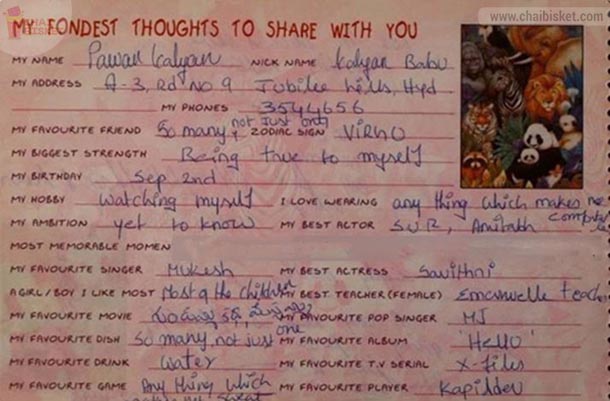 www.chaibisket.com
MY FONDEST THOUGHTS TO SHARE WITH YOU
MY NAME Pawan Kalyan NICK NAME Kalyan Babu
MY ADDRESS A-3, Rd No 9 Jubilee hills, Hyd
MY PHONES 3544656
MY FAVOURITE FRIEND So many, not just one ZODIAC SIGN VIRGO
MY BIGGEST STRENGTH Being true to myself
MY BIRTHDAY Sep 2nd
MY HOBBY watching myself I LOVE WEARING any thing which makes me
MY AMBITION yet to know MY BEST ACTOR Amitabh
MOST MEMORABLE MOMEN
MY FAVOURITE SINGER Mukesh MY BEST ACTRESS Savithri
A GIRL/BOY I LIKE MOST Most of the children MY BEST TEACHER(FEMALE) teach
MY FAVOURITE MOVIE MY FAVOURITE POP SINGER MJ
MY FAVOURITE DISH So many, not just one MY FAVOURITE ALBUM 'Hello'
MY FAVOURITE DRINK Water MY FAVOURITE T.V SERIAL X-files
MY FAVOURITE GAME Any thing which MY FAVOURITE PLAYER Kapildev